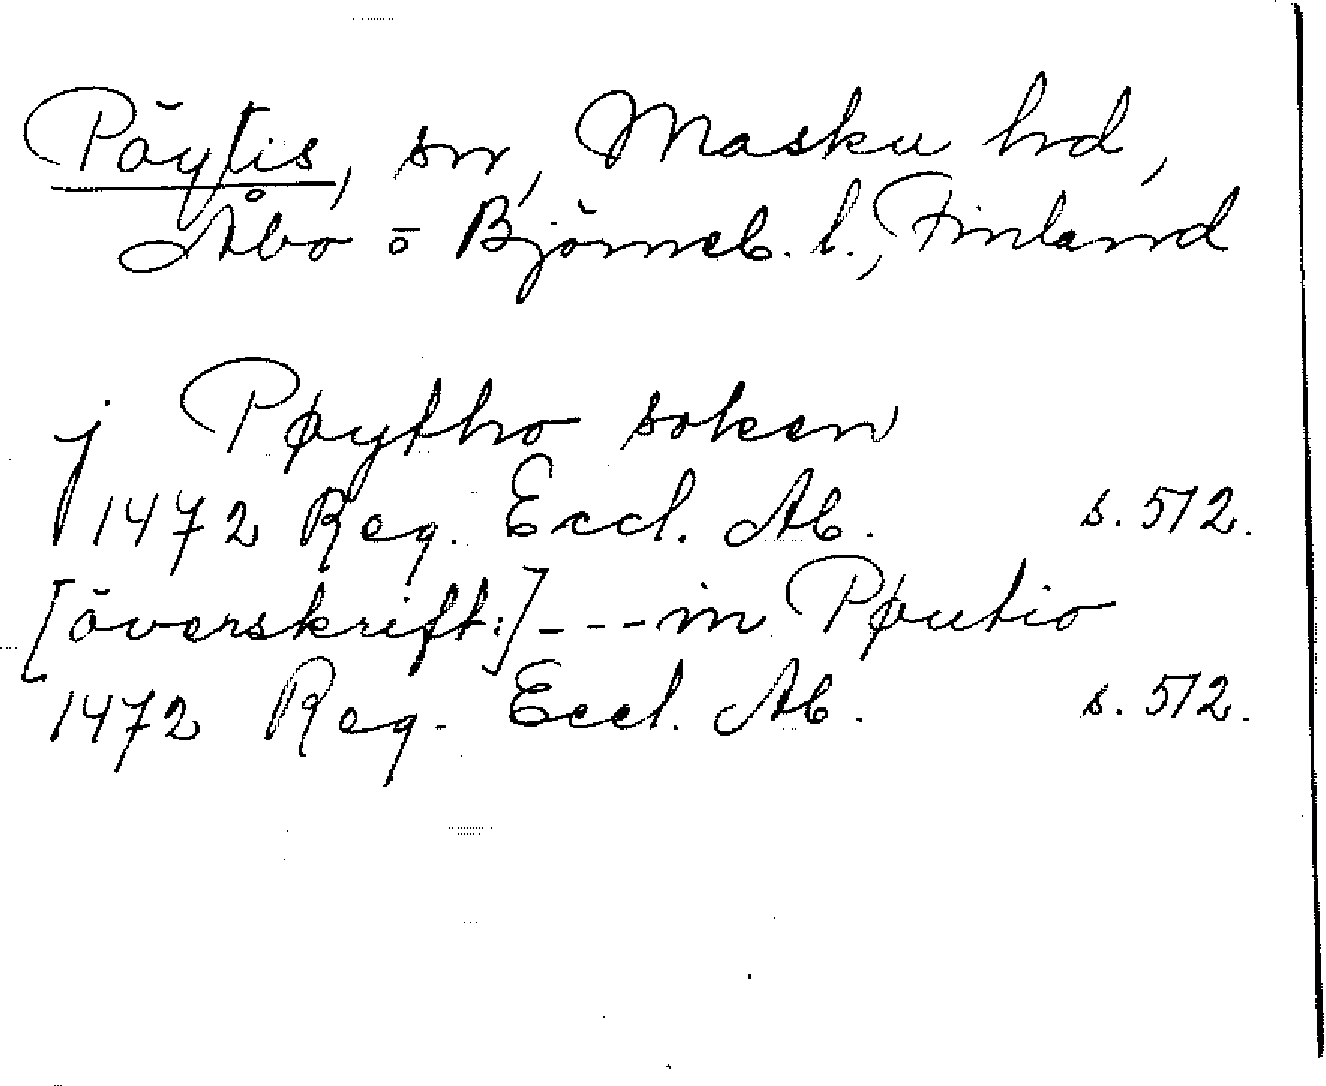 Pöytis, sn, Masku hd,
Åbo o Björneb. l., Finland
j Pøythro soken
1472 Reg. Eccl. Ab. s. 512.
[överskrift:] --- in Pøutio
1472 Reg. Eccl. Ab. s. 512.